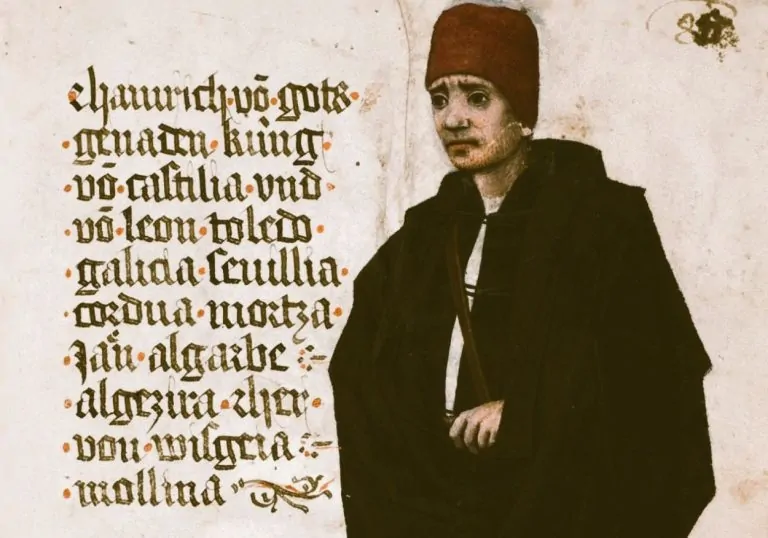 chainrich·võ·gots·
·genaden·küng·
·võ·castilia·vnd·
·võ·leon·toledo·
·galicia·seuillia·
·cordua·mortza·
·Jaẽn·algarbe
·algezira·vher·
·von·wisgeia
·mollina